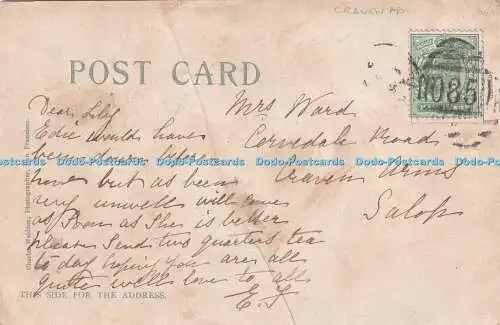 CRAVEN ARMS
POST CARD
R085
Dear Lily
Edie would have
been down before
now but as been
very unwell will come
as Soon as She is better
please Send two quarters tea
to day hoping you are all
quite well love to all
E. J
Mrs Ward
Corvedale Road
Craven Arms
Salop
THIS SIDE FOR THE ADDRESS.
Photographer,
Dodo-Postcards Dodo-Postcards Dodo-Postcards Dodo-Postcards Dodo-Postcards Dodo-Postcards